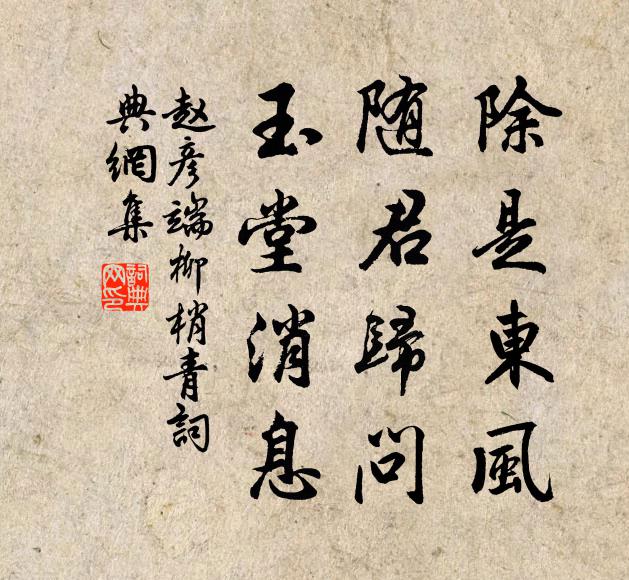 除是東風
随君歸問
玉堂消息
赵彦端柳梢青詞
典網集
詞典网印